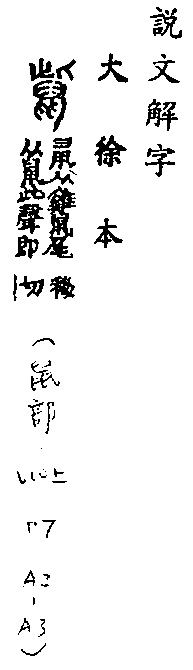 說文解字
大徐本
鼠似雞鼠尾
从鼠此聲即移切
(鼠部 V10上 P7 A2-A3)